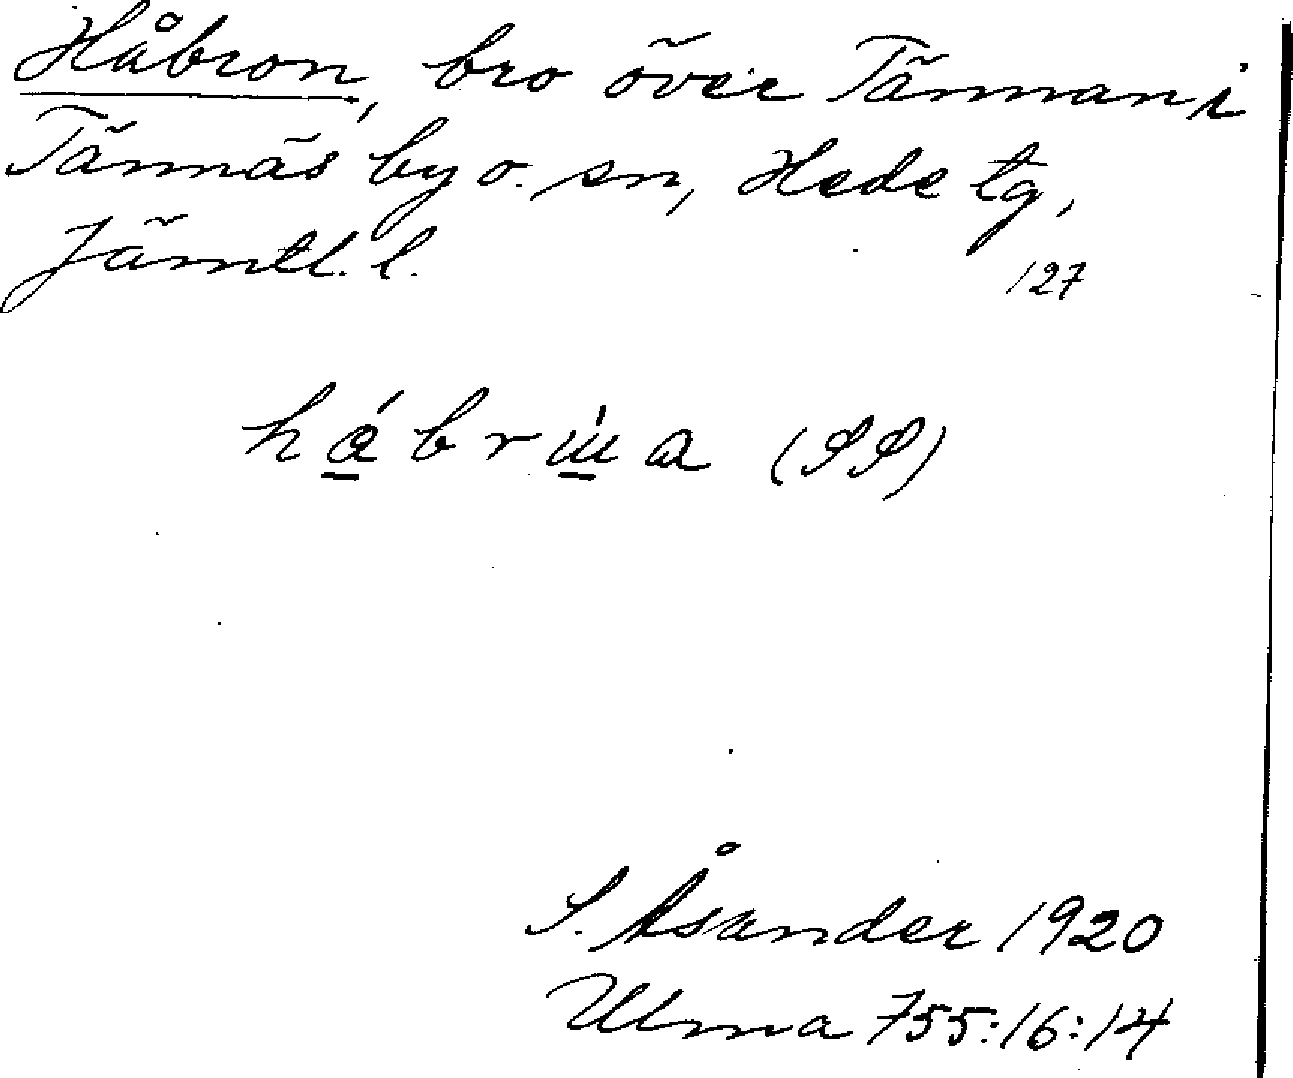 Håbron, bro över Tännan i
Tännäs by o. sn, Hede tg,
Jämtl. l.
127
hábrɯ́a (PP)
S. Åsander 1920
Ulma 755:16:14